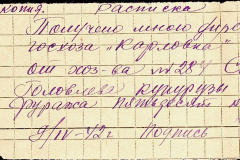 копия. Расписка
Получено мною дире
госхоза "Карловка"
от хоз-ва № 287 С
Головлева кукурузы
фуража пятьдесят
9/IV-42г Подпись